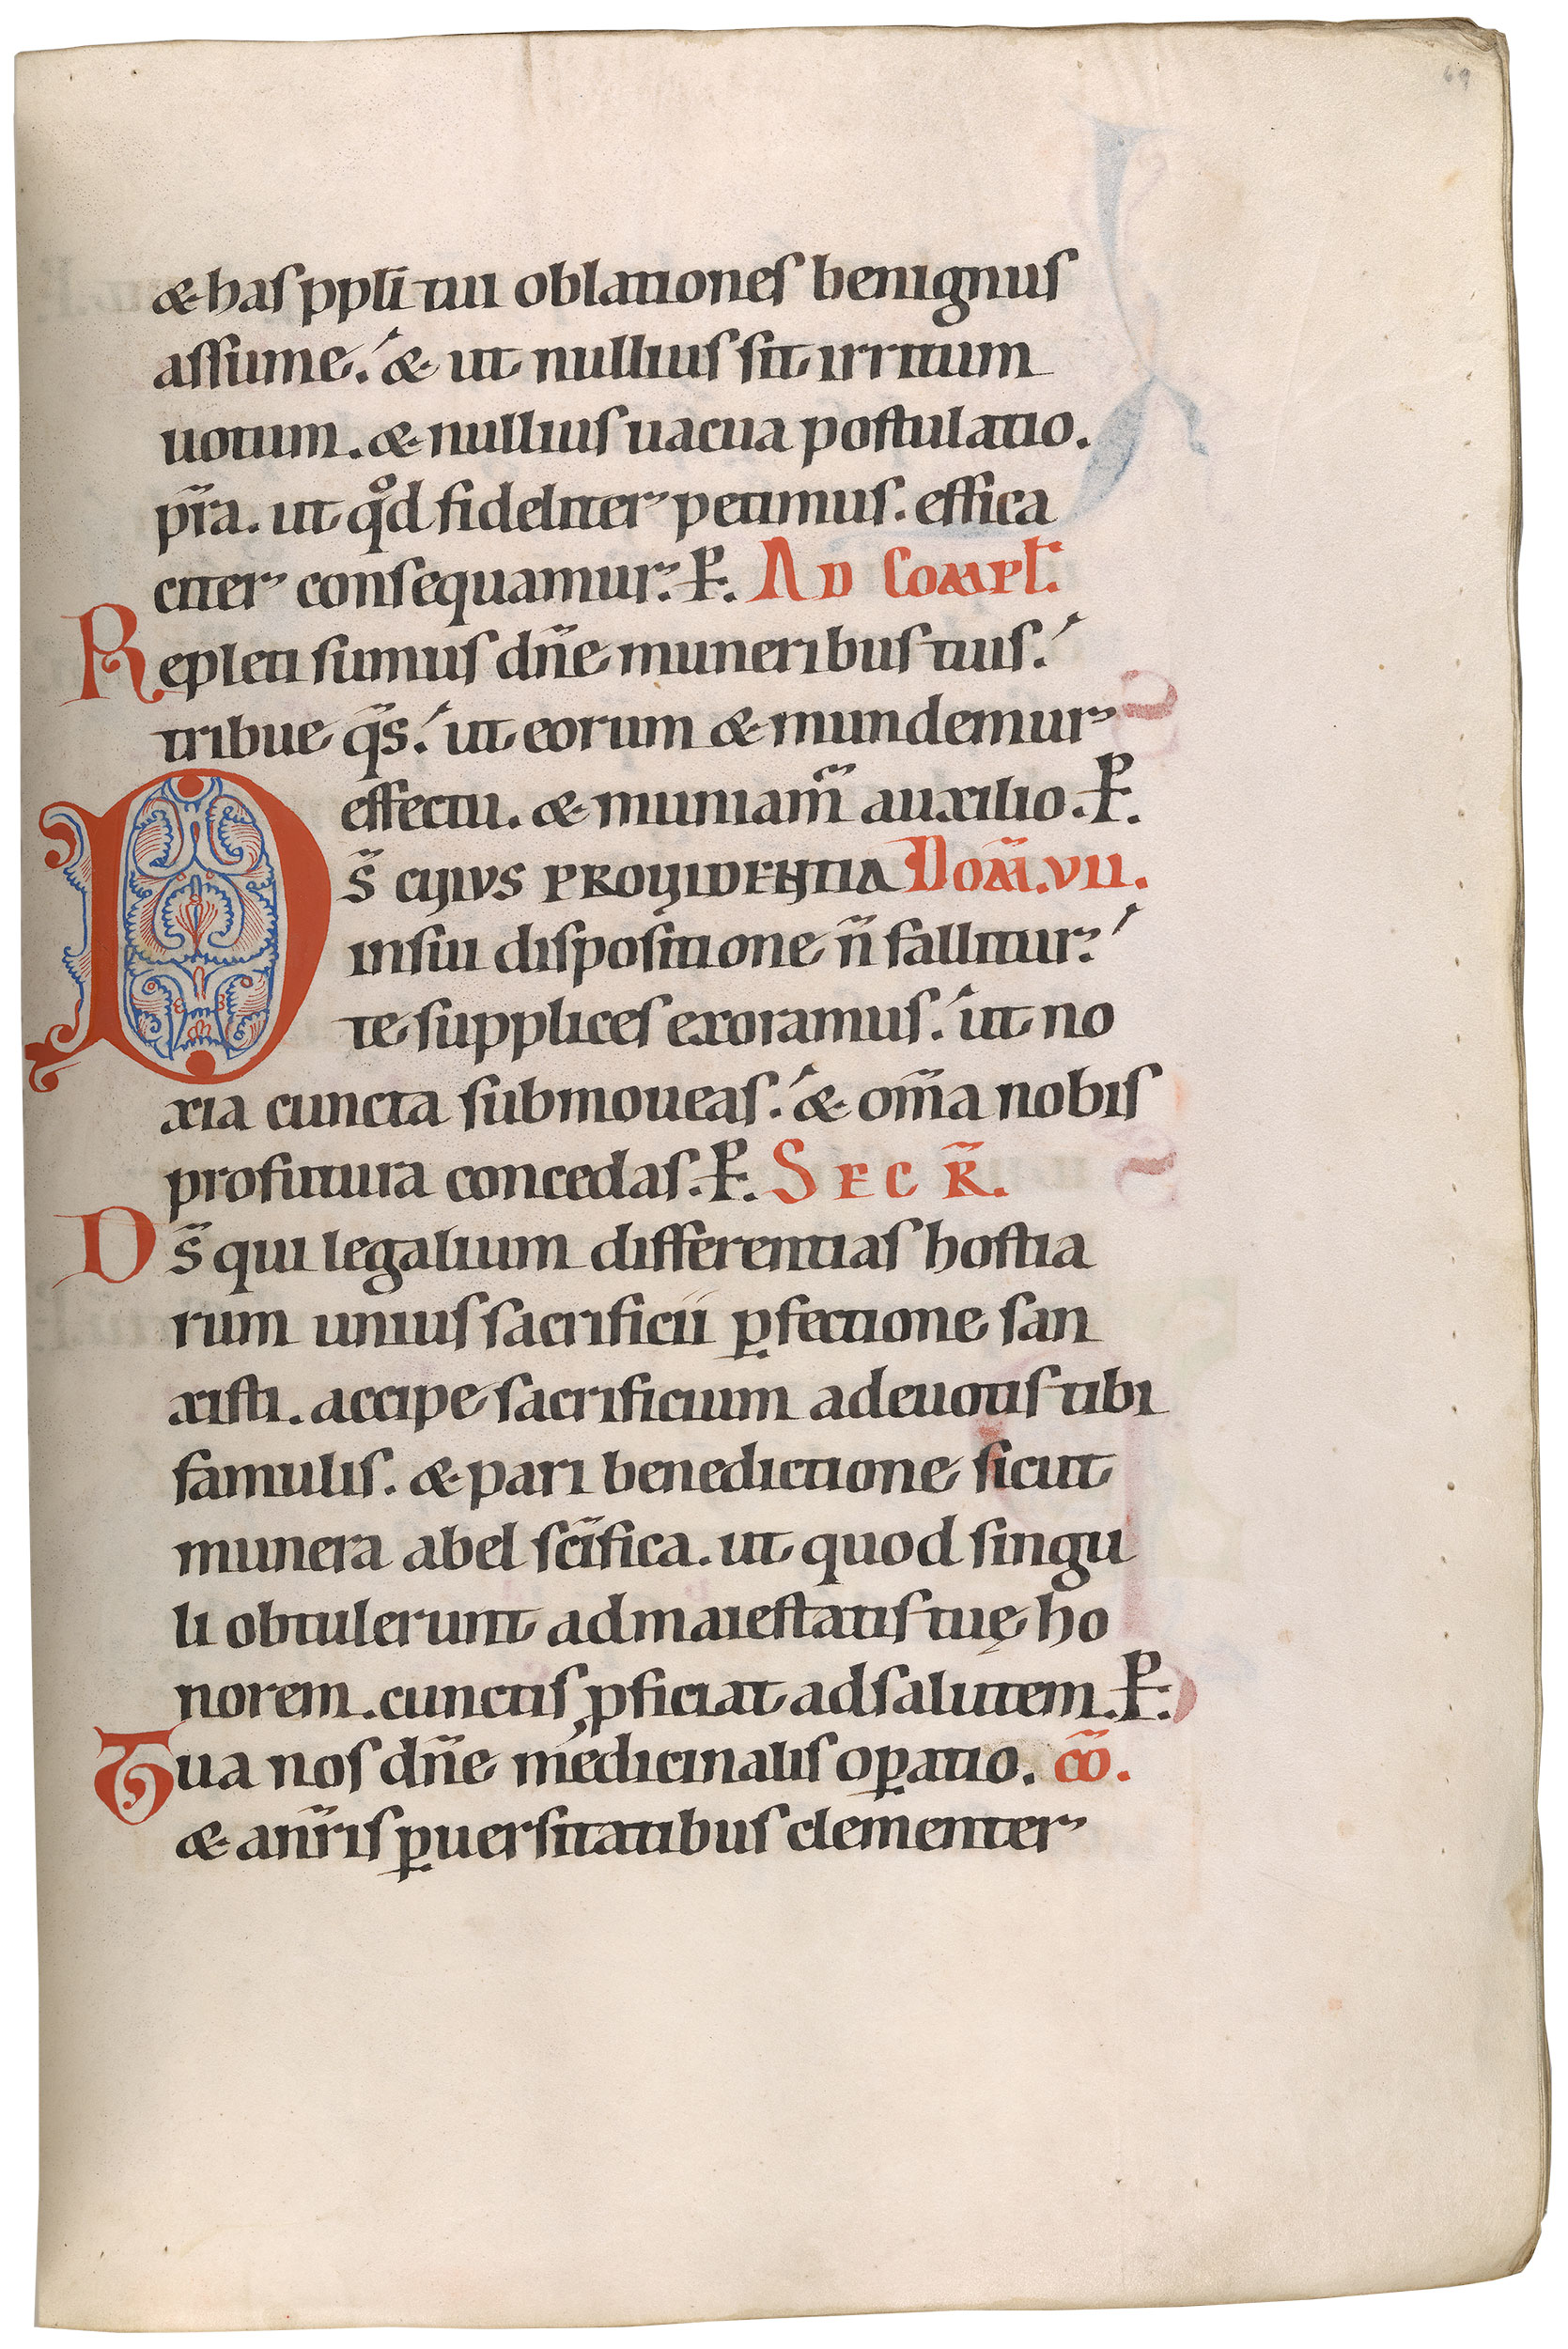 69
& has pplı̄ tui oblationes benignus
assume. & ut nullius sit irritum
uotum. & nullius uacua postulatio.
pr̄a. ut qͦd fideliter petimus. effica
citer consequamur. P. AD COMPL̄.
Repleti sumus dn̄e muneribus tuis.
tribue q̄s. ut eorum & mundemur
effectu. & muniam̄ auxilio. P.
Ds̄ CUIUS PROVIDENTIA DOM̄. VII.
insui dispositione n̄ fallitur.
te supplices exoramus. ut no
xia cuncta submoueas. & om̄a nobis
profutura concedas. P. SECR̄.
Ds̄ qui legalium differentias hostia
rum unius sacrificii ꝑfectione san
xisti. accipe sacrificium adeuotis tibi
famulis. & pari benedictione sicut
munera abel sc̄ifica. ut quod singu
li obtulerunt admaiestatis tuę ho
norem. cunctis ꝓficiat adsalutem. P.
Tua nos dn̄e medicinalis oꝑatio. cō.
& anr̄is ꝑuersitatibus clementer